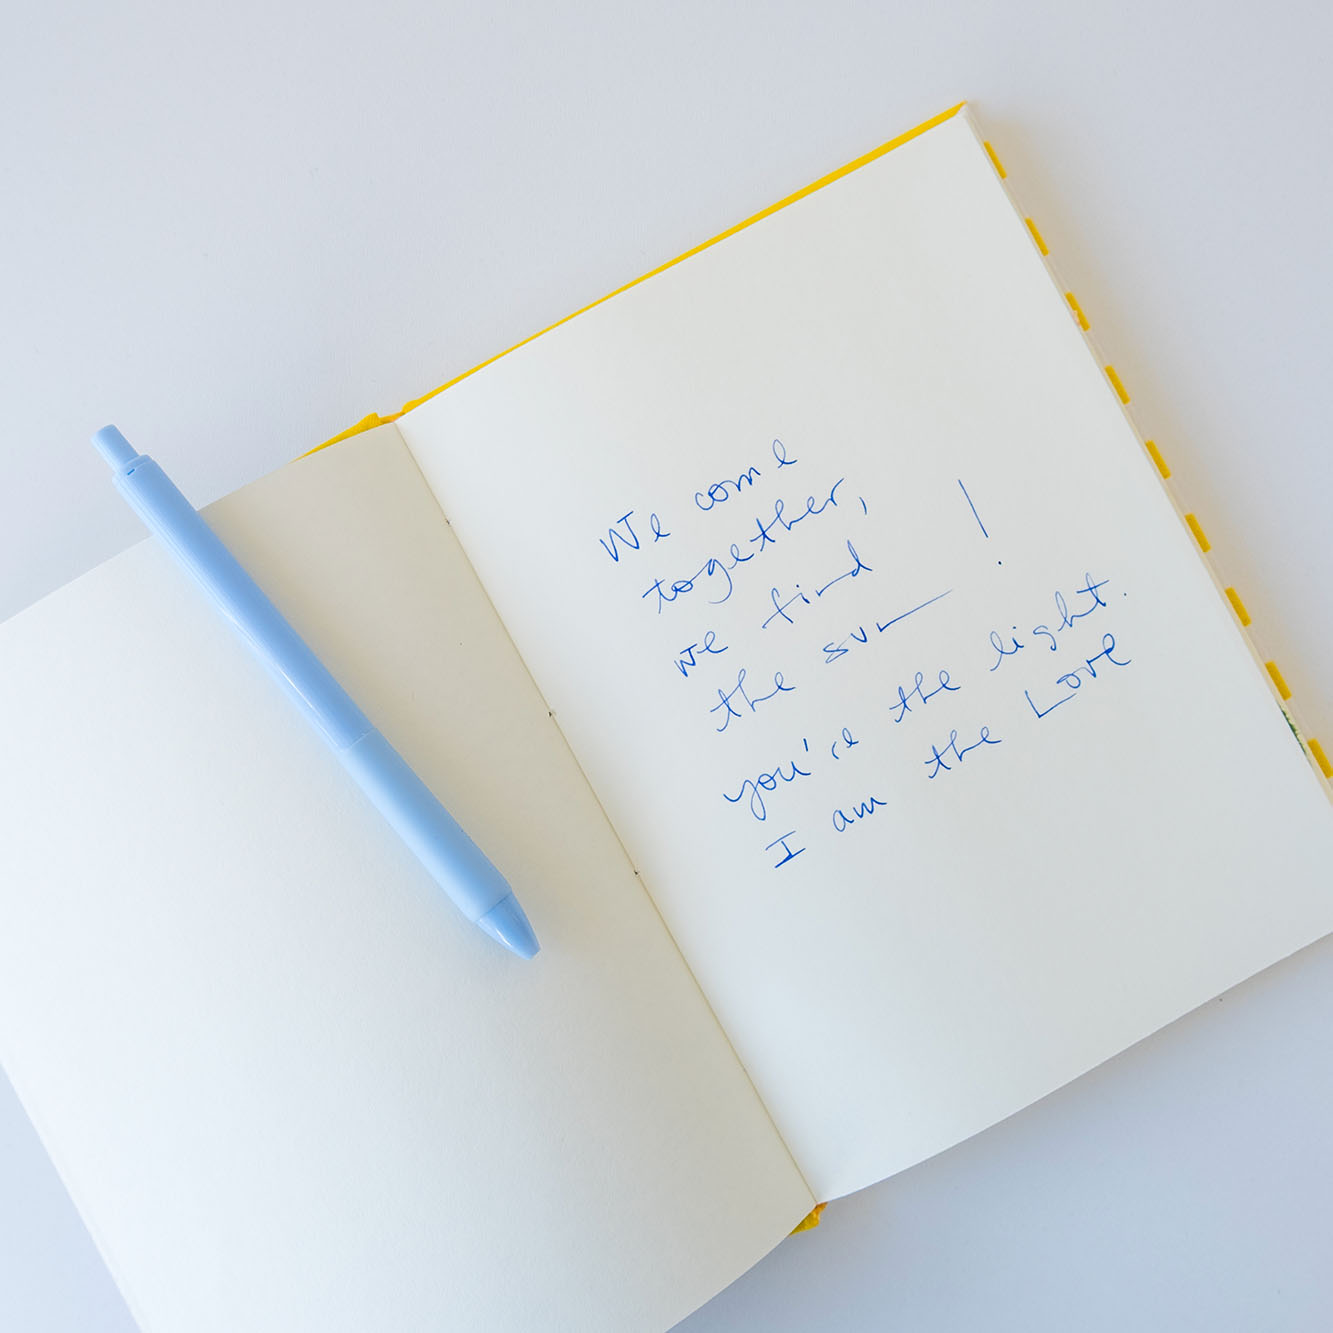 We come
together,
we find
the sun!
you're the light.
I am the Love